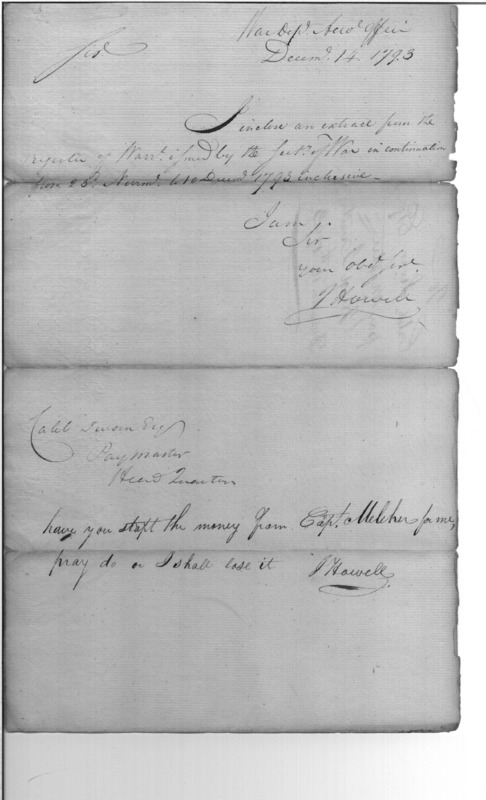 War Dept. Accts. Office
Decemr. 14. 1793
Sir
I inclose an extract from the
register of Warrts. issued by the Secty. of War in continuation
from 28th. Novemr. to 10 Decemr. 1793 inclusive —
I am,
Sir
your Obdt. Servt.
J Howell
Caleb Swan Esqr
Paymaster
Head Quarters
have you stopt the money from Capt. Melcher for me,
pray do or I shall lose it J Howell